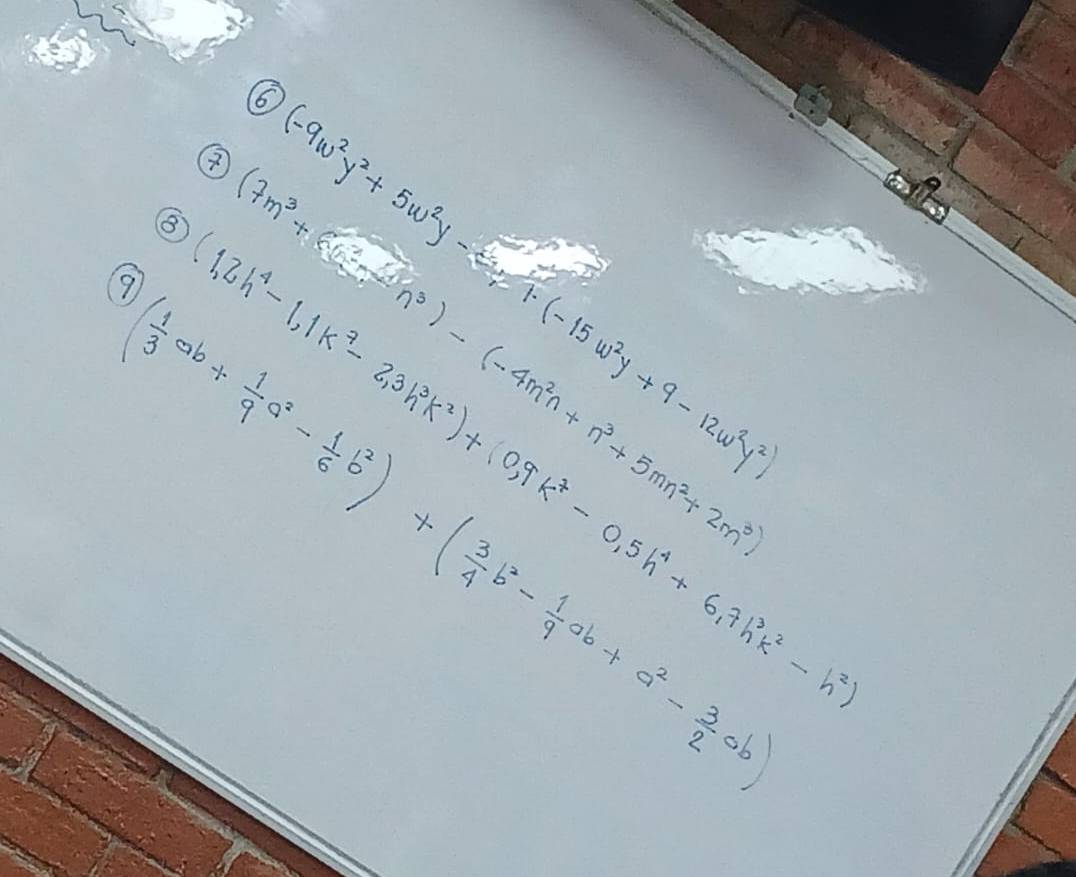 ⑥ (-9w²y²+ 5w²y - (-15w²y + 9 - 12w²y²)
⑦ (7m³+ n³) - (-4m²n + n³ + 5mn²+ 2m³)
⑧ (1,2h⁴ - 1,1k⁷ - 2,3h³k²) + (0,9k⁷ - 0,5h⁴ + 6,7h³k² - h²)
⑨ (1/3 ab + 1/9 a² - 1/6 b²) + (3/4 b² - 1/9 ab + a² - 3/2 ab)